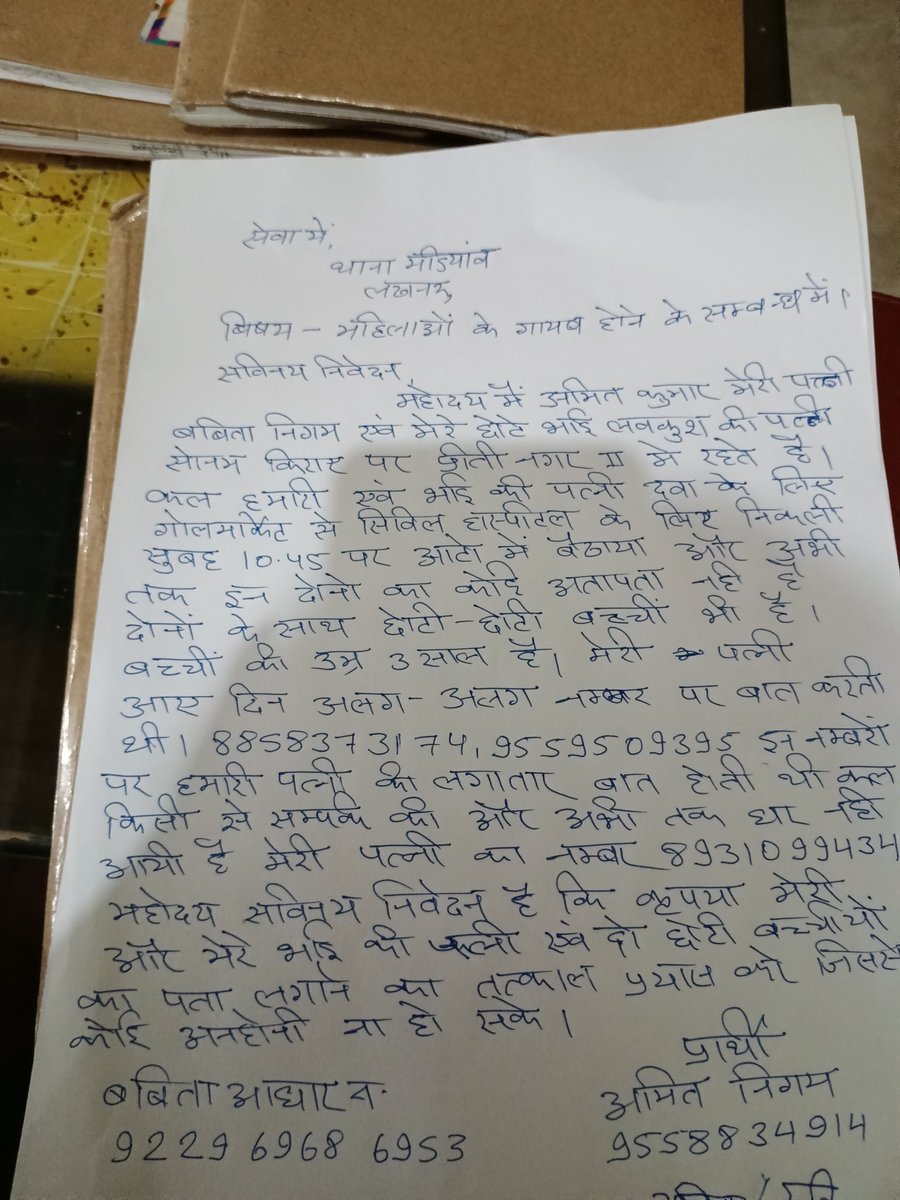 सेवा में,
थाना मडियांव
लखनऊ
विषय - महिलाओं के गायब होने के सम्बन्ध में।
सविनय निवेदन,
महोदय में अमित कुमार मेरी पत्नी
बबिता निगम एवं मेरे छोटे भाई लवकुश की पत्नी
सोनम किराए पर प्रीती नगर II मे रहते है।
कल हमारी एवं भाई की पत्नी दवा के लिए
गोलमार्केट से सिविल हास्पीटल के लिए निकली
सुबह 10.45 पर आटो में बैठाया और अभी
तक इन दोनो का कोई अतापता नही है
दोनों के साथ छोटी-छोटी बच्चीं भी है।
बच्चीं की उम्र 3 साल है। मेरी पत्नी
आए दिन अलग-अलग नम्बर पर बात करती
थी। 8858373174, 9559509395 इन नम्बरों
पर हमारी पत्नी की लगातार बात होती थी कल
किसी से सम्पर्क की और अभी तक घर नही
आयी है मेरी पत्नी का नम्बर 8931099434
महोदय सविनय निवेदन है कि कृपया मेरी
और मेरे भाई की पत्नी एवं दो छोटी बच्चीयों
का पता लगाने का तत्काल प्रयास करे जिससे
कोई अनहोनी ना हो सके।
प्रार्थी
बबिता आधार न.
अमित निगम
9229 6968 6953
9558834914